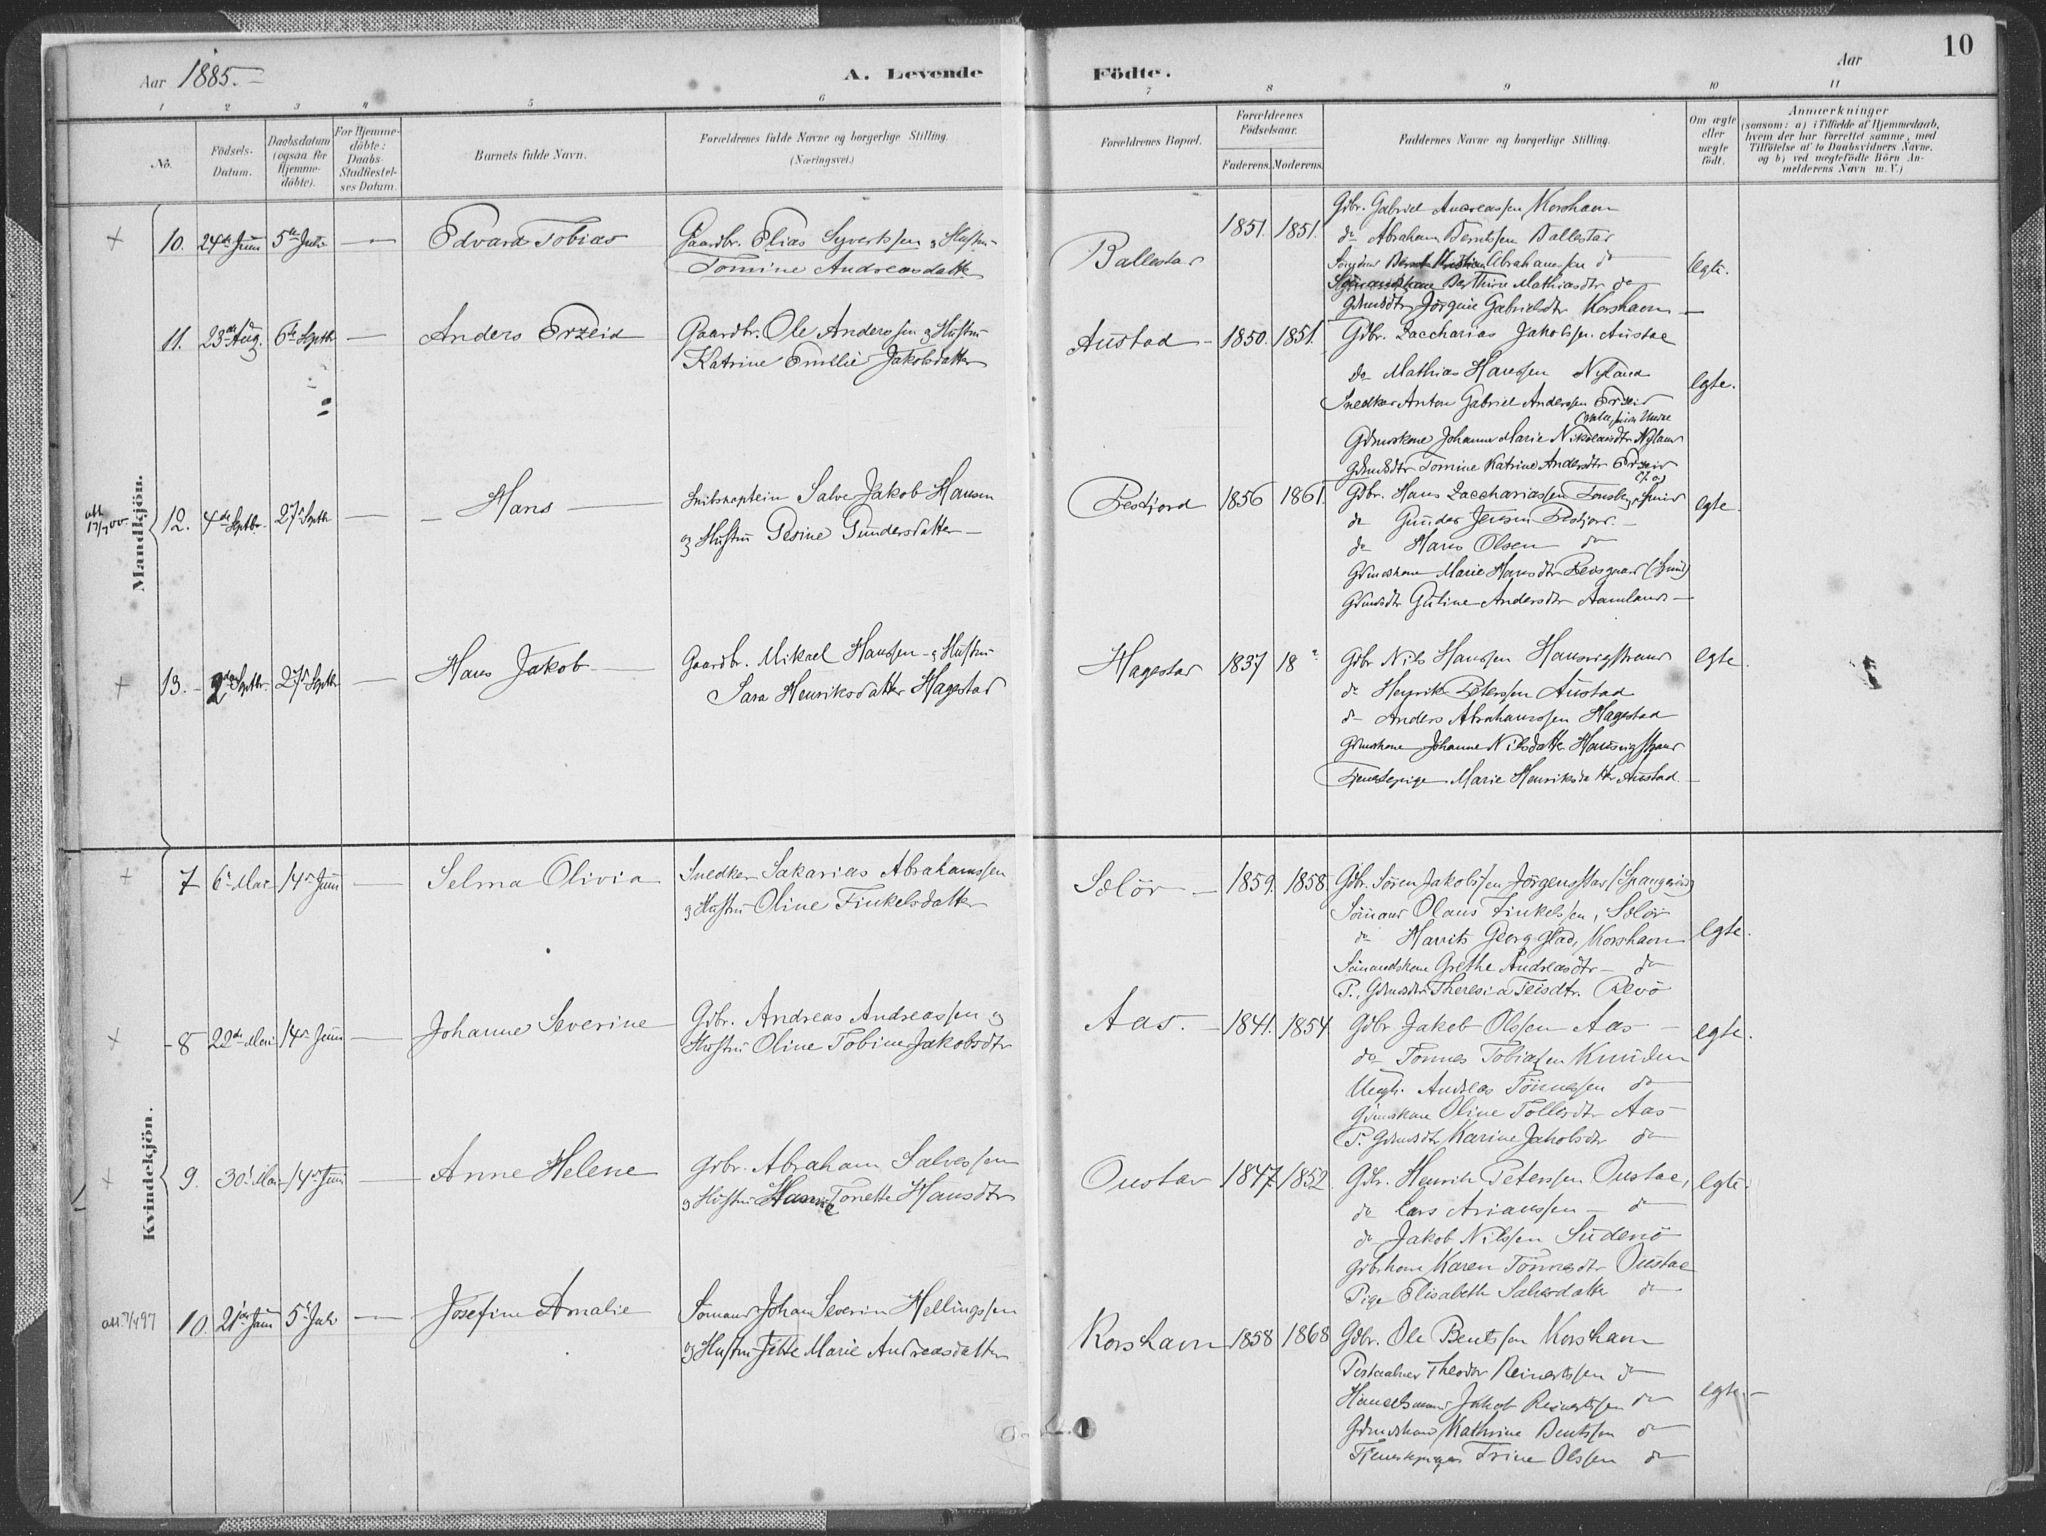 Aar 1885.
A. Levende
Födte.
Aar
10
1 2 3 4 5 6 7 8 9 10 11
No.
Födsels-
Datum.
Daabsdatum
(ogsaa for
Hjemme-
döbte).
For Hjemme-
döbte:
Daabs-
Stadfæstel-
ses Datum.
Barnets fulde Navn.
Forældrenes fulde Navne og borgerlige Stilling.
(Næringsvei.)
Forældrenes Bopæl.
Forældrenes
Födselsaar.
Faderens. Moderens.
Faddernes Navne og borgerlige Stilling.
Om ægte
eller
uægte
födt.
Anmærkninger
(saasom: a) i Tilfælde af Hjemmedaab,
hvem der har forrettet samme, med
Tilföielse af to Daabsvidners Navne,
og b) ved uægtefödte Börn An-
melderens Navn m. V.)
Mandkjön.
10. 24de Juni 5te Juli — Edvard Tobias
Gaardbr. Elias Syvertssen og Hustru
Tomine Andreasdatter
Ballestad 1851. 1851.
Gdbr. Gabriel Andreassen Korshavn
do Abraham Berntssen Ballestad
Abrahamssen do
Berthine Mathiasdtr do
Gdmdsdtr Jørgine Gabrielsdtr Korshavn
Egte.
11. 23de Aug. 6te Septbr — Anders Erzeid
Gaardbr. Ole Anderssen og Hustru
Katrine Emilie Jakobsdatter
Austad 1850. 1851.
Gdbr. Zaccharias Jakobssen Austad
do Mathias Hanssen Nyland
Snedker Anton Gabriel Anderssen Erzeid
Gdmdskone Johanne Marie Nikolaisdtr Nyland
Gdmdsdtr Tomine Katrine Andersdtr Erzeid
Egte.
att 17/7 00
12. 4de Septbr. 27de Septbr — Hans
Skibskaptein Salve Jakob Hansen
og Hustru Gesine Gundersdatter
Restjord 1856 1861.
Gdbr. Hans Zacchariassen
do Gunder Jensen
do Hans Olsen do
Gdmdskone Marie Hansdtr
Gdmdsdtr Guline Andersdtr Aamland
Egte.
13. 2den Septbr 27de Septbr — Hans Jakob
Gaardbr. Mikael Hanssen og Hustru
Sara Henriksdatter Hagestad
Hagestad 1837 18 ?
Gdbr Nils Hanssen Hausvigstrand
do Henrik Peterssen Austad
do Anders Abrahamssen Hagestad
Gdmdskone Johanne Nilsdatter Hausvigstrand
Tjenestepige Marie Henriksdatter Austad
Egte
Kvindekjön.
7 6te Mai 14de Juni — Selma Olivia
Snedker Sakarias Abrahamssen
og Hustru Oline Finkelsdatter
Sælør 1859. 1858.
Gdbr. Søren Jakobssen Jørgensstad (Spangereid)
Sømand Olaus Finkelssen, Sælør
do Georg Glad, Korshavn
Sømandskone Grethe Andreasdtr do
P. Gdmdsdtr Theresia Teisdtr. Revø
Egte.
8 22de Mai 14de Juni — Johanne Severine
Gdbr. Andreas Andreassen og
Hustru Oline Tobine Jakobsdtr
Aas. 1841. 1854
Gdbr Jakob Olssen Aas
do Tønnes Tobiassen
Ungk. Andreas Tønnessen do
Gdmdskone Oline Tollesdtr Aas
P. Gdmdsdtr Karine Jakobsdtr do
Egte.
9. 30te Mai 14de Juni — Anne Helene
Gdbr. Abraham Salvessen
og Hustru Tonette Hansdtr
Oustad 1847 1852
Gdbr. Henrik Peterssen Oustad,
do Lars Arianssen do
do Jakob Nilssen
Gdbrkone Karen Tønnesdtr Oustad
Pige Elisabeth Salvesdatter do
Egte.
10. 21de Juni 5te Juli — Josefine Amalie
Sømand Johan Severin Hellingssen
og Hustru Jette Marie Andreasdatter
Korshavn 1858 1868
Gdbr. Ole Bentssen Korshavn
Postaabner Theodor Reinertssen do
Handelsmand Jakob Reinertssen do
Gdmdskone Kathrine Bentssen do
Tjenestepige Trine Olssen do
Egte